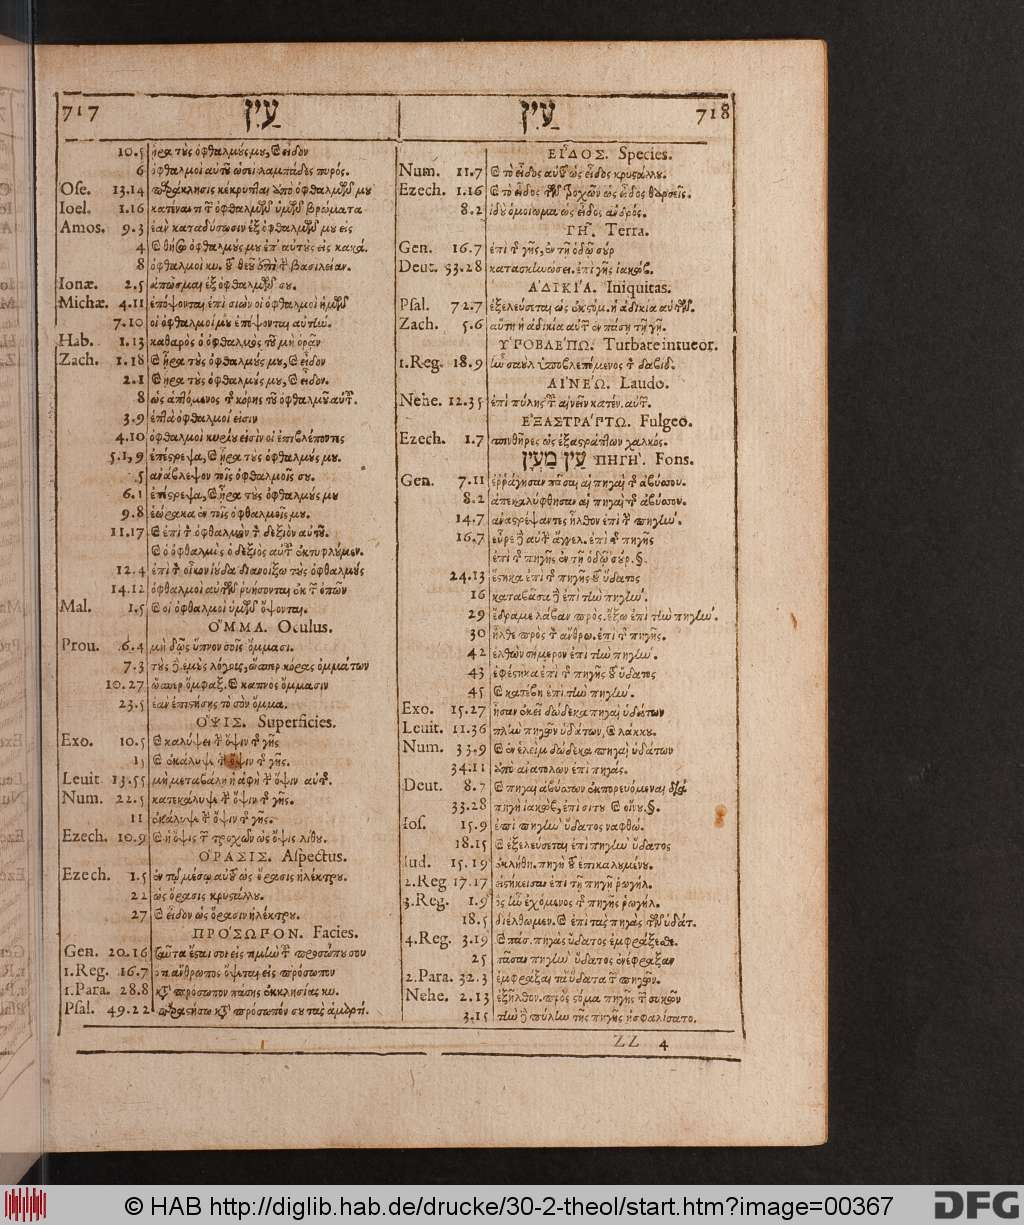 717 עַיִן
10.5 ἦρα τὺς ὀφθαλμύς μυ, ϗ εἶδον
6 ὀφθαλμοὶ αὐτοῦ ὡσεὶ λαμπάδες πυρός.
Ose. 13.14 παράκλησις κέκρυπται ὑπὸ ὀφθαλμῶν μυ
Ioel. 1.16 κατέναντι τ ὀφθαλμῶν ὑμῶν βρώματα
Amos. 9.3 ἐὰν καταδύσωσιν ἐξ ὀφθαλμῶν μυ εἰς
4 ϗ θήσω ὀφθαλμύς μυ ἐπ' αὐτὺς εἰς κακά.
8 ὀφθαλμοὶ κυ. τ θεοῦ ἐπὶ τ βασιλείαν.
Ionæ. 2.5 ἀπῶσμαι ἐξ ὀφθαλμῶν συ.
Michæ. 4.11 ἐπόψονται ἐπὶ σιὼν οἱ ὀφθαλμοὶ ἡμῶν
7.10 οἱ ὀφθαλμοί μυ ἐπόψονται αὐτίω.
Hab. 1.13 καθαρὸς ὁ ὀφθαλμὸς τοῦ μὴ ὁρᾶν
Zach. 1.18 ϗ ἦρα τὺς ὀφθαλμύς μυ, ϗ εἶδον
2.1 ϗ ἦρα τὺς ὀφθαλμύς μυ, ϗ εἶδον.
8 ὡς ἁπτόμενος τ κόρης τοῦ ὀφθαλμοῦ αὐτ.
3.9 ἑπτὰ ὀφθαλμοί εἰσιν
4.10 ὀφθαλμοὶ κυρίυ εἰσὶν οἱ ἐπιβλέποντες
5.1,9 ἐπέστρεψα, ϗ ἦρα τὺς ὀφθαλμύς μυ.
5 ἀνάβλεψον τοῖς ὀφθαλμοῖς συ.
6.1 ἐπέστρεψα, ϗ ἦρα τὺς ὀφθαλμύς μυ
9.8 ἑώρακα ἐν τοῖς ὀφθαλμοῖς μυ.
11.17 ϗ ἐπὶ τ ὀφθαλμὸν τ δεξιὸν αὐτοῦ.
ϗ ὁ ὀφθαλμὸς ὁ δεξιὸς αὐτ ἐκτυφλύμεν.
12.4 ἐπὶ τ οἶκον ἰύδα διανοίξω τὺς ὀφθαλμύς
14.12 ὀφθαλμοὶ αὐτῶν ῥυήσονται ἐκ τ ὀπῶν
Mal. 1.5 ϗ οἱ ὀφθαλμοὶ ὑμῶν ὄψονται.
ὌΜΜΑ. Oculus.
Prou. 6.4 μὴ δῷς ὕπνον σοῖς ὄμμασι.
7.3 τὺς ἐμὺς λόγυς, ὥσπερ κόρας ὀμμάτων
10.27 ὥσπερ ὄμφαξ. ϗ καπνὸς ὄμμασιν
23.5 ἐὰν ἐπιστήσῃς τὸ σὸν ὄμμα.
ὌΨΙΣ. Superficies.
Exo. 10.5 ϗ καλύψει τ ὄψιν τ γῆς
15 ϗ ἐκάλυψε τ ὄψιν τ γῆς.
Leuit. 13.55 μὴ μεταβάλῃ ἡ ἁφὴ τ ὄψιν αὐτ.
Num. 22.5 κατεκάλυψε τ ὄψιν τ γῆς.
11 ἐκάλυψε τ ὄψιν τ γῆς.
Ezech. 10.9 ϗ ἡ ὄψις τ τροχῶν ὡς ὄψις λίθυ.
ὍΡΑΣΙΣ. Aspectus.
Ezech. 1.5 ἐν τῷ μέσῳ αὐτ ὡς ὅρασις ἠλέκτρυ.
22 ὡς ὅρασις κρυστάλλυ.
27 ϗ εἶδον ὡς ὅρασιν ἠλέκτρυ.
ΠΡΌΣΩΠΟΝ. Facies.
Gen. 20.16 ταῦτα ἔσται σοι εἰς τιμίω τ προσώπυ συ
1.Reg. 16.7 ὅτι ἄνθρωπος ὄψεται εἰς πρόσωπον
1.Para. 28.8 κτ πρόσωπον πάσης ἐκκλησίας κυ.
Psal. 49.22 παραστήσω κτ πρόσωπόν συ τὰς ἁμαρτί.
עַיִן 718
ΕἾΔΟΣ. Species.
Num. 11.7 ϗ τὸ εἶδος αὐτ ὡς εἶδος κρυστάλλυ.
Ezech. 1.16 ϗ τὸ εἶδος τῶν τροχῶν ὡς εἶδος θαρσεῖς.
8.2 ἰδὺ ὁμοίωμα ὡς εἶδος ἀνδρός.
ΓΗ͂. Terra.
Gen. 16.7 ἐπὶ τ γῆς, ἐν τῇ ὁδῷ σύρ
Deut. 33.28 κατασκίωώσει. ἐπὶ γῆς ἰακώβ.
ἈΔΙΚΊΑ. Iniquitas.
Psal. 72.7 ἐξελεύσεται ὡς ἐκ στέατ. ἡ ἀδικία αὐτῶν.
Zach. 5.6 αὕτη ἡ ἀδικία αὐτ ἐν πάσῃ τῇ γῇ.
ὙΠΟΒΛΈΠΩ. Turbate intueor.
1.Reg. 18.9 ἰω σαυλ ὑποβλεπόμενος τ δαβίδ.
ΑἸΝΈΩ. Laudo.
Nehe. 12.35 ἐπὶ πύλης τ αἰνεῖν κατέν. αὐτ.
ἘΞΑΣΤΡΆΠΤΩ. Fulgeo.
Ezech. 1.7 σπινθῆρες ὡς ἐξαστράπτων χαλκός.
עַיִן מַעְיָן ΠΗΓΉ. Fons.
Gen. 7.11 ἐῤῥάγησαν πᾶσαι αἱ πηγαὶ τ ἀβύσσυ.
8.2 ἀπεκαλύφθησαν αἱ πηγαὶ τ ἀβύσσυ.
14.7 ἀναστρέψαντες ἦλθον ἐπὶ τ πηγίω.
16.7 εὗρε αὐτ ἄγγελ. ἐπὶ τ πηγῆς
ἐπὶ τ πηγῆς ἐν τῇ ὁδῷ σύρ. §.
24.13 ἕστηκα ἐπὶ τ πηγῆς τ ὕδατος
16 καταβᾶσα ἐπὶ τίω πηγίω.
29 ἔδραμε λάβαν πρὸς. ἔξω ἐπὶ τίω πηγίω.
30 ἦλθε πρὸς τ ἄνθρω. ἐπὶ τ πηγῆς.
42 ἐλθὼν σήμερον ἐπὶ τίω πηγίω.
43 ἐφέστηκα ἐπὶ τ πηγῆς τ ὕδατος
45 ϗ κατέβη ἐπὶ τίω πηγίω.
Exo. 15.27 ἦσαν ἐκεῖ δώδεκα πηγαὶ ὑδάτων
Leuit. 11.36 πλίω πηγῶν ὑδάτων, ϗ λάκκυ.
Num. 33.9 ϗ ἐν ἑλεὶμ δώδεκα πηγαὶ ὑδάτων
34.11 ἀπὸ ἀνατολῶν ἐπὶ πηγάς.
Deut. 8.7 ϗ πηγαὶ ἀβύσσων ἐκπορευόμεναι διὰ
33.28 πηγὴ ἰακώβ, ἐπὶ σίτυ ϗ οἴνυ. §.
Ios. 15.9 ἐπὶ πηγίω ὕδατος ναφθώ.
18.15 ϗ ἐξελεύσεται ἐπὶ πηγίω ὕδατος
Iud. 15.19 ἐκλήθη. πηγὴ τ ἐπικαλυμένυ.
2.Reg 17.17 εἱστήκεισαν ἐπὶ τῇ πηγῇ ῥωγήλ.
3.Reg. 1.9 ὃς ἰω ἐχόμενος τ πηγῆς ῥωγήλ.
18.5 διέλθωμεν. ϗ ἐπὶ τὰς πηγὰς τῶν ὑδάτ.
4.Reg. 3.19 ϗ πάσ. πηγὰς ὕδατος ἐμφράξεσθε.
25 πᾶσαν πηγίω ὕδατος ἐνέφραξαν
2.Para. 32.3 ἐμφράξαι τὰ ὕδατα τ πηγῶν.
Nehe. 2.13 ἐξῆλθον. πρὸς στόμα πηγῆς τ συκῶν
3.15 τίω πύλίω τῆς πηγῆς ἠσφαλίσατο.
ZZ 4
© HAB http://diglib.hab.de/drucke/30-2-theol/start.htm?image=00367
DFG